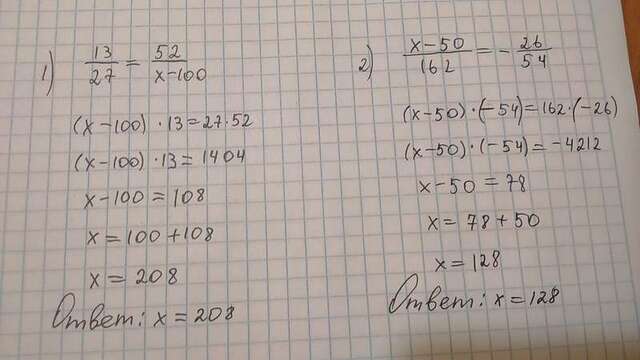 1) 13/27 = 52/x-100
(x-100) · 13 = 27·52
(x-100) · 13 = 1404
x-100 = 108
x = 100+108
x = 208
Ответ: x = 208
2) x-50/162 = - 26/54
(x-50) · (-54) = 162 · (-26)
(x-50) · (-54) = -4212
x-50 = 78
x = 78+50
x = 128
Ответ: x = 128